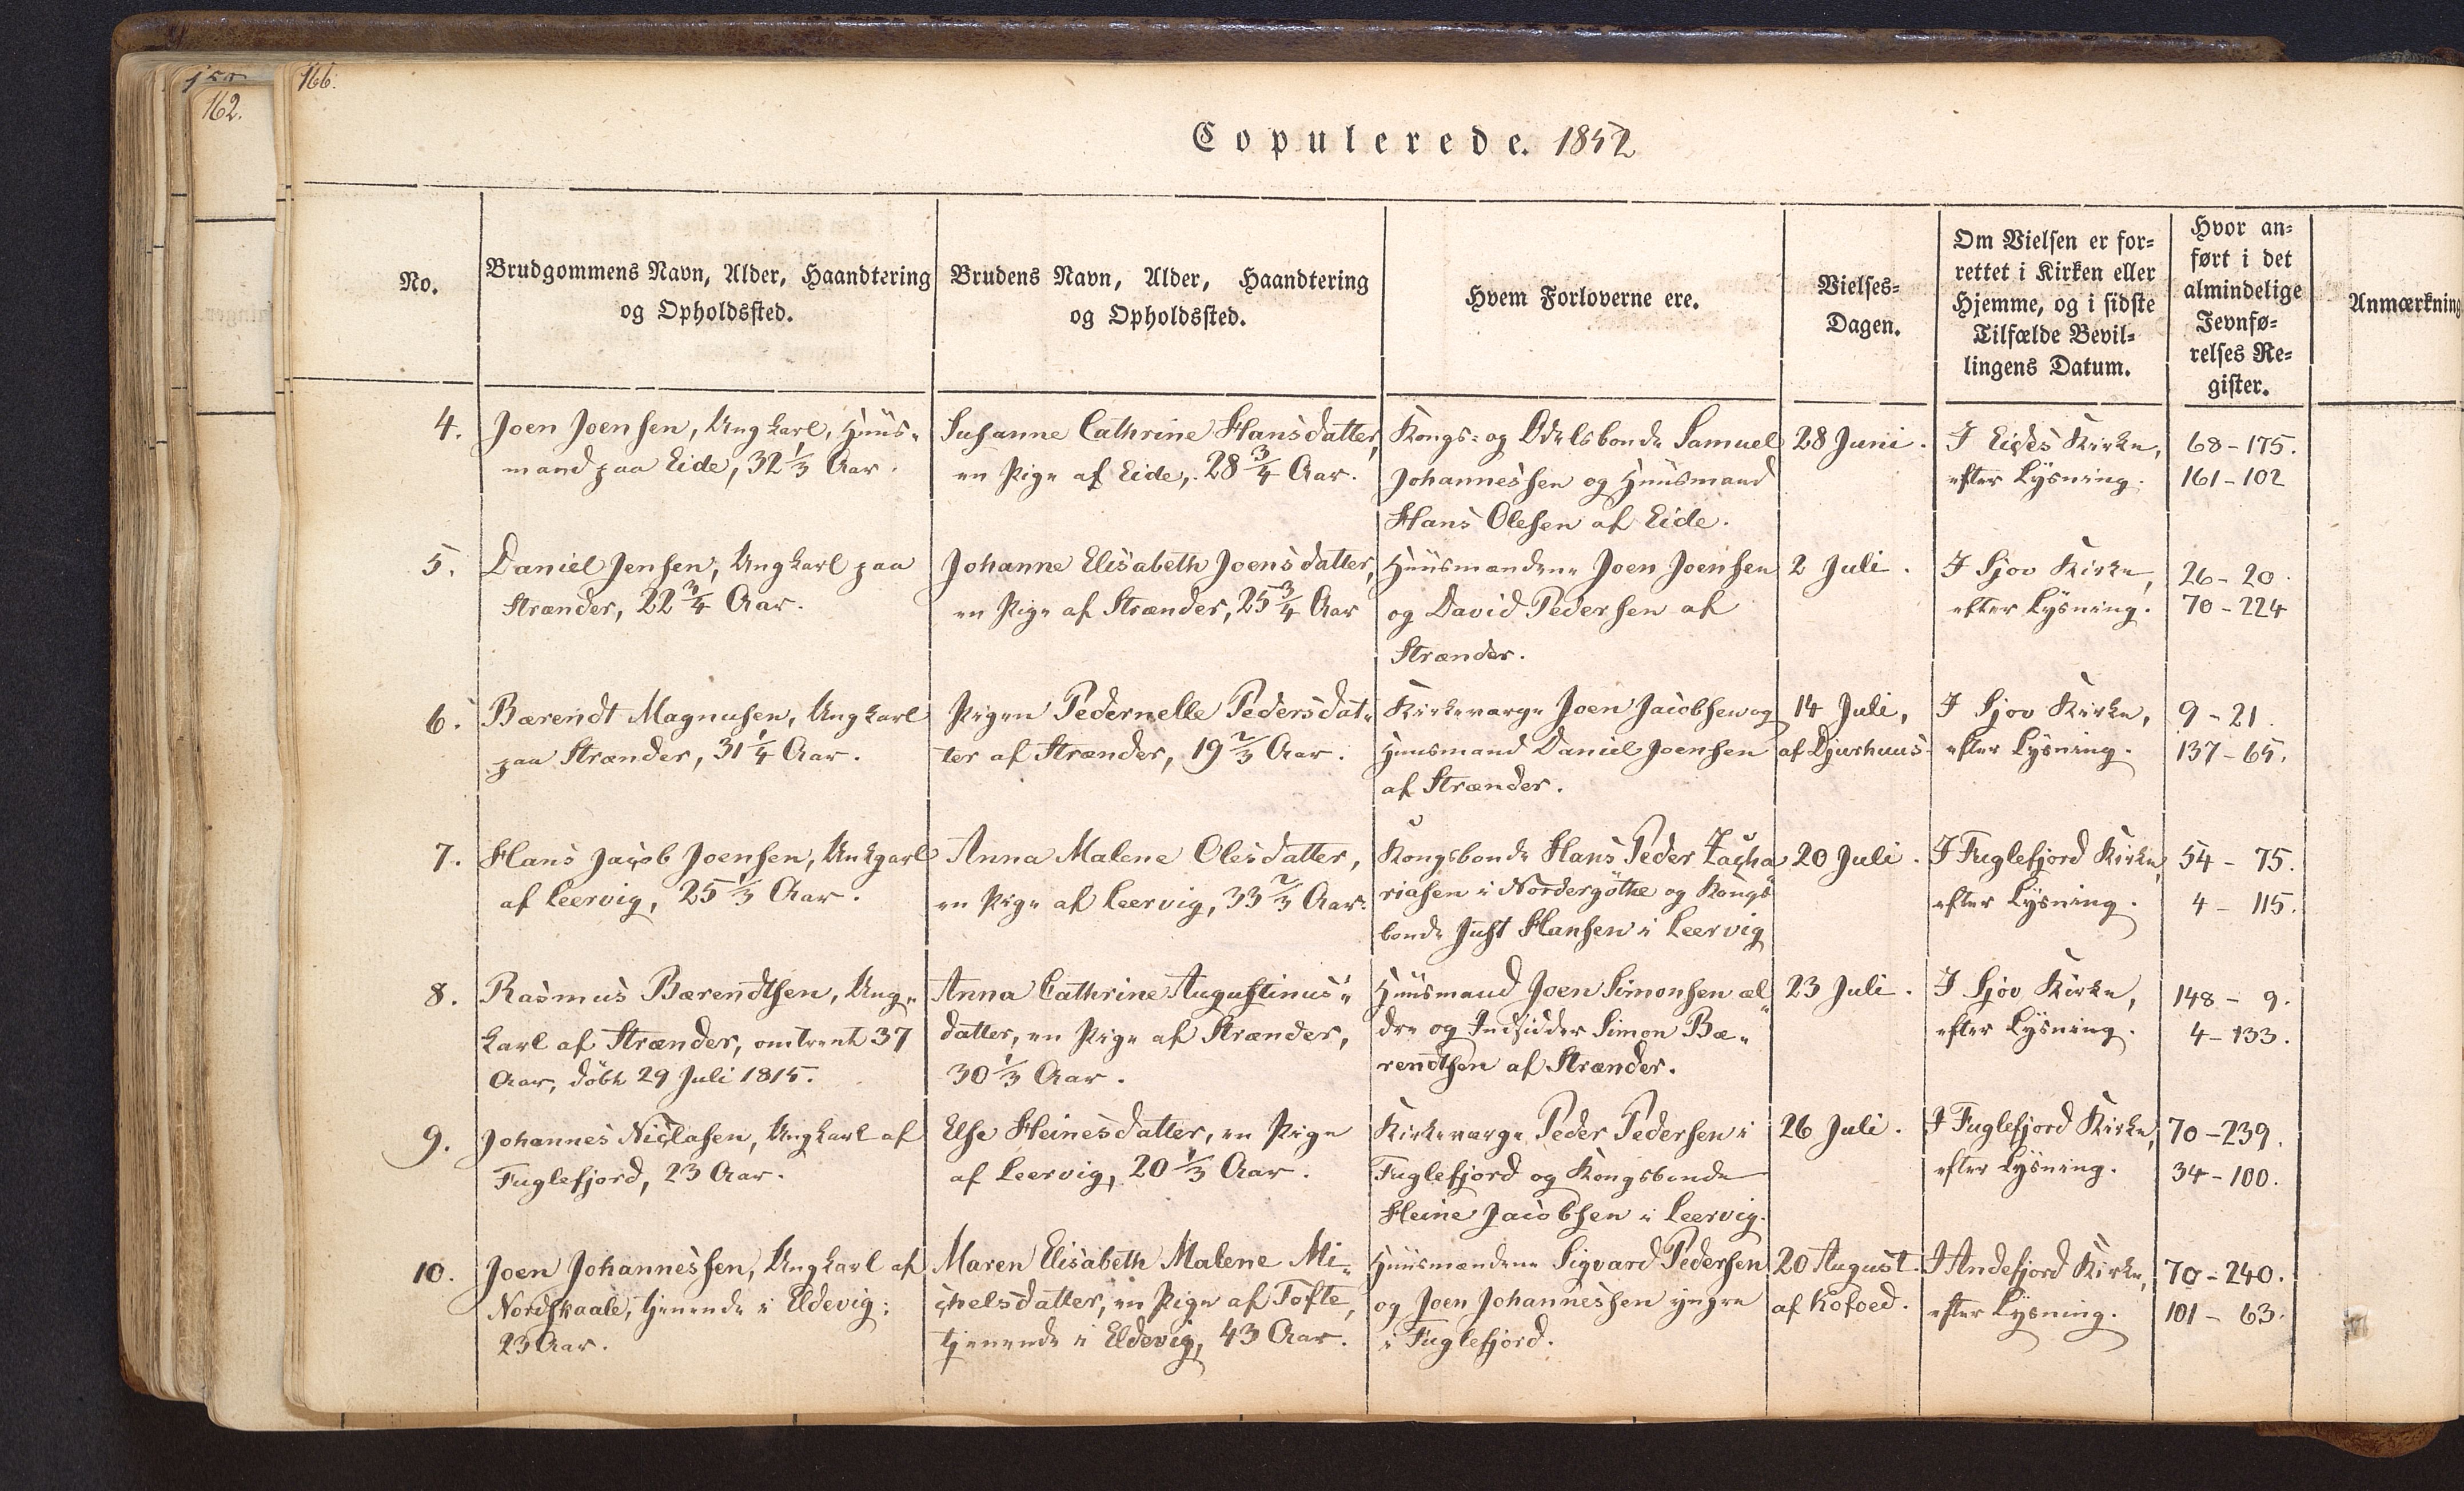 166.
162.
Copulerede. 1852
No.
Brudgommens Navn, Alder, Haandtering
og Opholdssted.
Brudens Navn, Alder, Haandtering
og Opholdssted.
Hvem Forloverne ere.
Vielses-
Dagen.
Om Vielsen er for-
rettet i Kirken eller
Hjemme, og i sidste
Tilfælde Bevil-
lingens Datum.
Hvor an-
ført i det
almindelige
Jevnfø-
relses Re-
gister.
Anmærkning
4.
Joen Joensen, Ungkarl, Huus-
mand paa Eide, 32 1/3 Aar.
Susanne Cathrine Hansdatter,
en Pige af Eide, 28 3/4 Aar.
Kongs- og Odelsbonde Samuel
Johannessen og Huusmand
Hans Olesen af Eide.
28 Juni.
I Eides Kirke,
efter Lysning.
68-175.
161-102
5.
Daniel Jensen, Ungkarl paa
Strænder, 22 3/4 Aar.
Johanne Elisabeth Joensdatter,
en Pige af Strænder, 25 3/4 Aar
Huusmændene Joen Joensen
og David Pedersen af
Strænder.
2 Juli.
I Sjov Kirke,
efter Lysning.
26-20.
70-224
6.
Bærendt Magnusen, Ungkarl
paa Strænder, 31 1/4 Aar.
Pigen Pedernelle Pedersdat-
ter af Strænder, 19 2/3 Aar.
Kirkeværge Joen Jacobsen og
Huusmand Daniel Joensen
af Strænder.
14 Juli,
af Djurhuus.
I Sjov Kirke,
efter Lysning.
9-21.
137-65.
7.
Hans Jacob Joensen, Unkgarl
af Leervig, 25 1/3 Aar.
Anna Malene Olesdatter,
en Pige af Leervig, 33 2/3 Aar.
Kongsbonde Hans Peder Zacha
riasen i Nordergöthe og Kongs-
bonde Just Hansen i Leervig
20 Juli.
I Fuglefjord Kirke,
efter Lysning.
54-75.
4-115.
8.
Rasmus Bærendtsen, Ung-
karl af Strænder, omtrent 37
Aar, döbt 29 Juli 1815.
Anna Cathrine Augustinus-
datter, en Pige af Strænder,
30 1/3 Aar.
Huusmand Joen Simonsen æl-
dre og Indsidder Simon Bæ-
rendtsen af Strænder.
23 Juli.
I Sjov Kirke,
efter Lysning.
148-9.
4-133.
9.
Johannes Niclasen, Ungkarl af
Fuglefjord, 23 Aar.
Else Heinesdatter, en Pige
af Leervig, 20 1/3 Aar.
Kirkeværge Peder Pedersen i
Fuglefjord og Kongsbonde
Heine Jacobsen i Leervig.
26 Juli.
I Fuglefjord Kirke,
efter Lysning.
70-239.
34-100.
10.
Joen Johannessen, Ungkarl af
Nordskaale, tjenende i Eldevig,
23 Aar.
Maren Elisabeth Malene Mi-
chelsdatter, en Pige af Tofte,
tjenende i Eldevig, 43 Aar.
Huusmændene Sigvard Pedersen
og Joen Johannessen yngre
i Fuglefjord.
20 August.
af Kofoed.
I Andefjord Kirke,
efter Lysning.
70-240.
101-63.